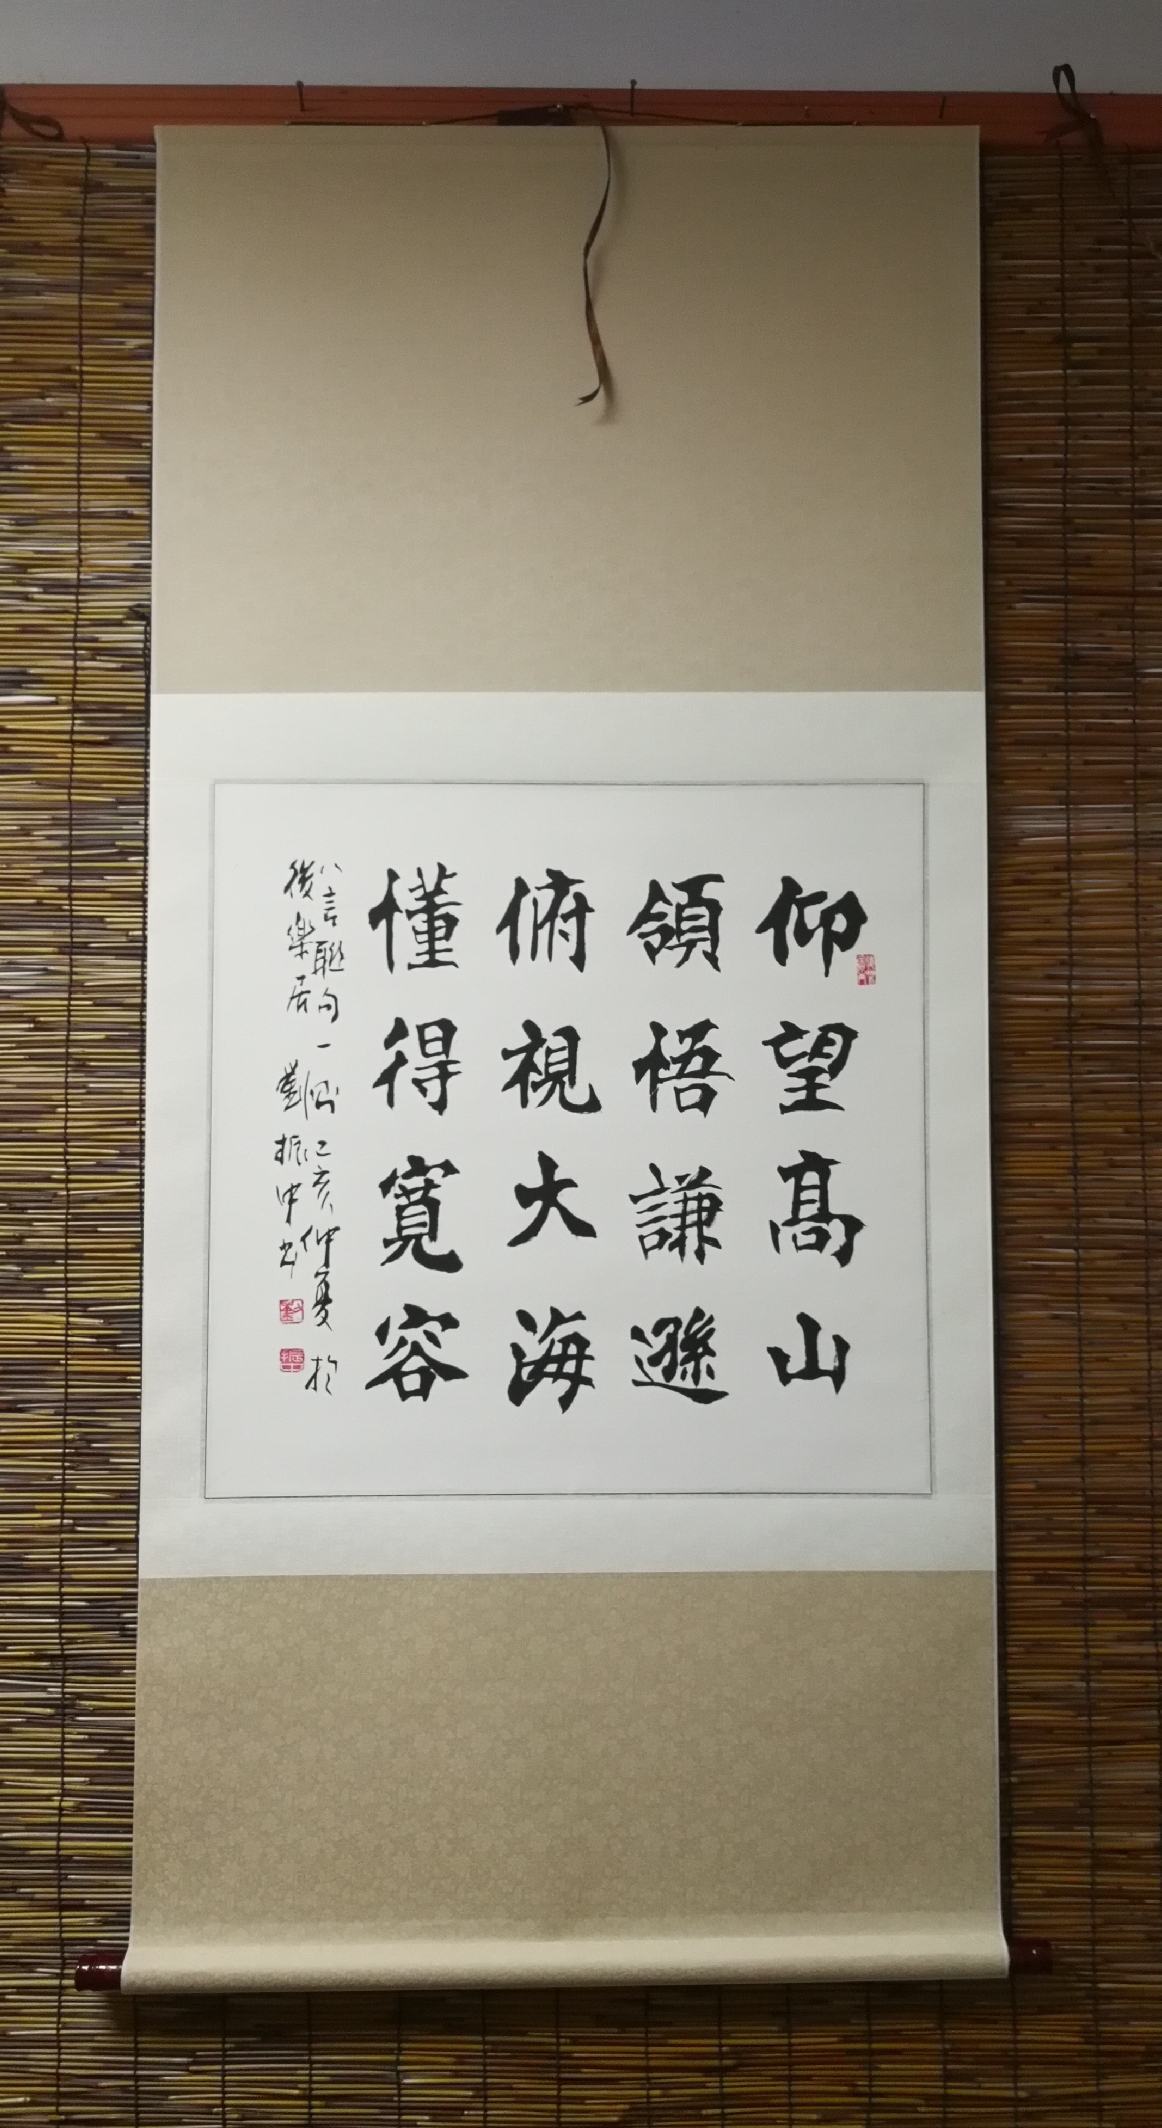 仰望高山
領悟謙遜
俯視大海
懂得寬容
八言聯句一則己亥仲夏於
後樂居劉振中書